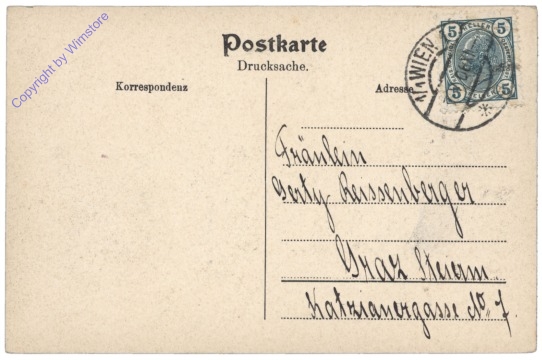 Copyright by Wimstore
Postkarte
Drucksache.
Korrespondenz
Adresse
1/1 WIEN
5 5
5 5
Fräulein
Gerty Reissenberger
Graz Steierm.
Katzianergasse No. 7.